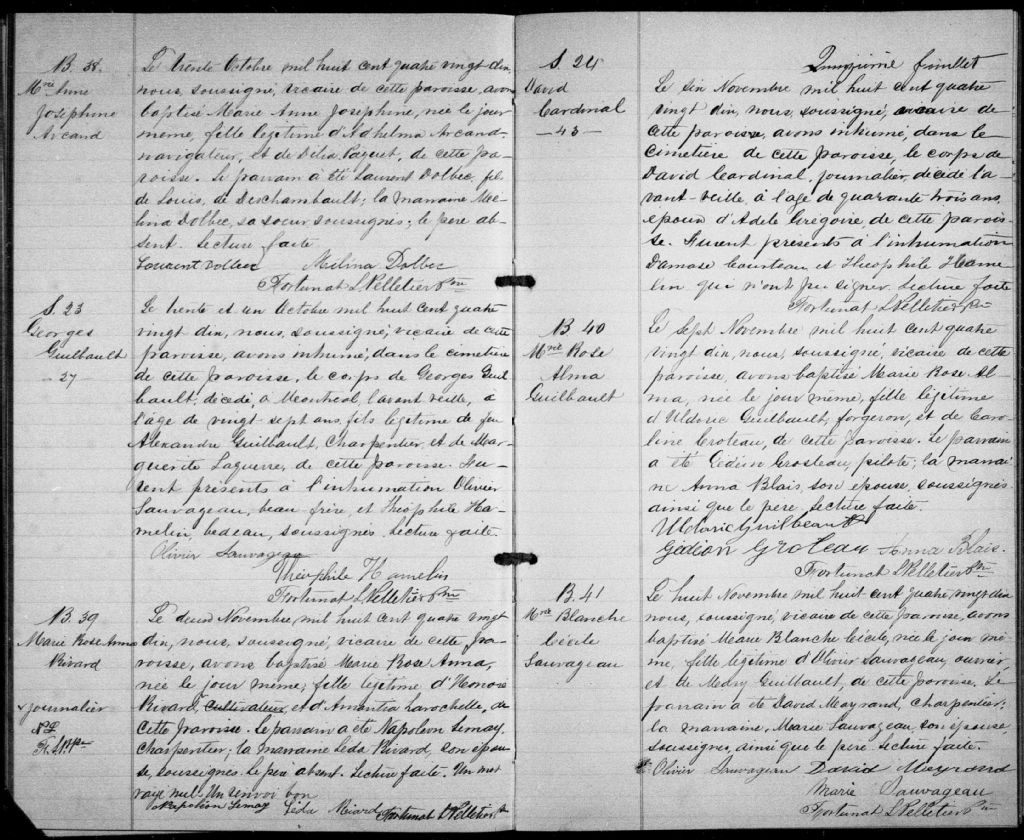 B. 38.
Mrie Anne
Joséphine
Arcand
Le trente Octobre mil huit cent quatre vingt dix,
nous, soussigné, vicaire de cette paroisse, avons
baptisé Marie Anne Joséphine, née le jour
même, fille légitime d'Adhelma Arcand
navigateur, et de Délia Paquet, de cette pa-
roisse. Le parrain a été Laurent Dolbec, fils
de Louis, de Deschambault; la marraine Mé-
lina Dolbec, sa soeur, soussignés; le père ab-
sent. Lecture faite
Laurent Dolbec Mélina Dolbec
Fortunat L Pelletier Ptre
S. 23
Georges
Guilbault
- 27 -
Le trente et un Octobre mil huit cent quatre
vingt dix, nous, soussigné, vicaire de cette
paroisse, avons inhumé, dans le cimetière
de cette paroisse, le corps de Georges Guil-
bault, décédé à Montréal, l'avant veille, à
l'âge de vingt sept ans, fils légitime de feu
Alexandre Guilbault, charpentier, et de Mar-
guerite Laguerre, de cette paroisse. Fu-
rent présents à l'inhumation Olivier
Sauvageau, beau-frère, et Théophile Ha-
melin, bedeau, soussignés. Lecture faite.
Olivier Sauvageau
Théophile Hamelin
Fortunat L Pelletier Ptre
B. 39
Marie Rose Anna
Rivard
x journalier
N L
F. L P Ptre
Le deux Novembre, mil huit cent quatre vingt
dix, nous, soussigné, vicaire de cette pa-
roisse, avons baptisé Marie Rose Anna,
née le jour même, fille légitime d'Honoré
Rivard, cultivateur, et d'Amentia Larochelle, de
cette paroisse. Le parrain a été Napoléon Lemay,
charpentier; la marraine Léda Rivard, son épou-
se, soussignés. Le père absent. Lecture faite. Un mot
rayé nul. Un renvoi bon
Napoléon Lemay Léda Rivard Fortunat L Pelletier Ptre
Quinzième feuillet
S. 24
David
Cardinal
- 43 -
Le six Novembre mil huit cent quatre
vingt dix, nous, soussigné, vicaire de
cette paroisse, avons inhumé, dans le
cimetière de cette paroisse, le corps de
David Cardinal, journalier, décédé l'a-
vant-veille, à l'âge de quarante trois ans,
époux d'Adèle Grégoire, de cette parois-
se. Furent présents à l'inhumation
Damase Courteau et Théophile Hame-
lin qui n'ont pu signer. Lecture faite
Fortunat L Pelletier Ptre
B 40
Mrie Rose
Alma
Guilbault
Le sept Novembre mil huit cent quatre
vingt dix, nous, soussigné, vicaire de cette
paroisse, avons baptisé Marie Rose Al-
ma, née le jour même, fille légitime
d'Uldoric Guilbault, forgeron, et de Caro-
line Croteau, de cette paroisse. Le parrain
a été Gédéon Grosleau, pilote; la marrai-
ne Anna Blais, son épouse, soussignés
ainsi que le père. Lecture faite.
Uldoric Guilbeault
Gédion Groleau Anna Blais.
Fortunat L Pelletier Ptre
B. 41
Mrie Blanche
Cécile
Sauvageau
Le huit Novembre mil huit cent quatre vingt dix
nous, soussigné, vicaire de cette paroisse, avons
baptisé Marie Blanche Cécile, née le jour mê-
me, fille légitime d'Olivier Sauvageau, ouvrier,
et de Mary Guilbault, de cette paroisse. Le
parrain a été David Mayrand, charpentier;
la marraine, Marie Sauvageau, son épouse,
soussignés, ainsi que le père. Lecture faite.
Olivier Sauvageau David Mayrand
Marie Sauvageau
Fortunat L Pelletier Ptre